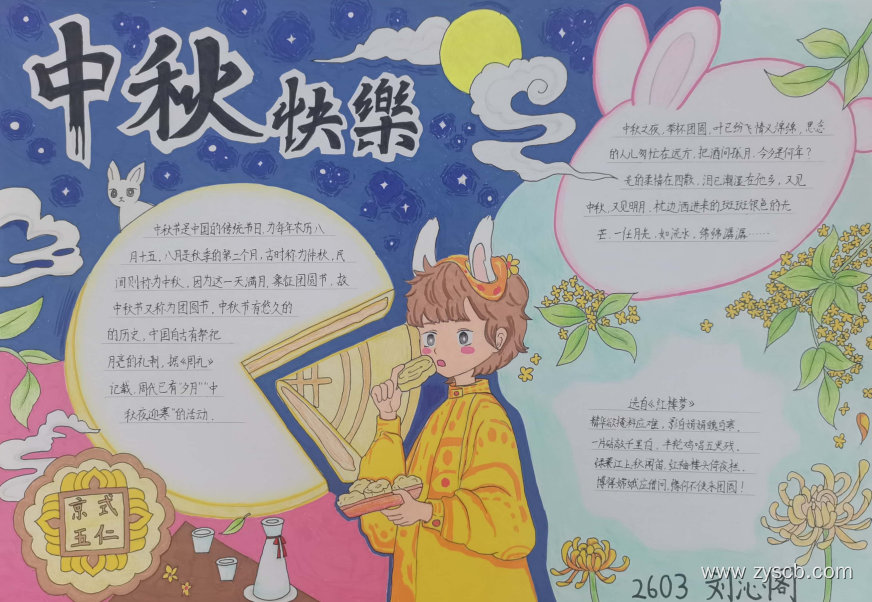 中秋快樂
中秋节是中国的传统节日,为每年农历八
月十五,八月是秋季的第二个月,古时称为仲秋,民
间则称为中秋,因为这一天满月,象征团圆节,故
中秋节又称为团圆节,中秋节有悠久的
的历史,中国自古有祭祀
月亮的礼制,据《周礼》
记载,周代已有“夕月”“中
秋夜迎寒”的活动.
中秋之夜,举杯团圆,叶已纷飞情义绵绵,思念
的人儿匆忙在远方,把酒问孤月,今夕是何年?
毛的柔情在四散,泪已潮湿在他乡,又见
中秋,又见明月,枕边洒进来的斑斑银色的光
芒,一任月光,如流水,绵绵潺潺……
选自《红楼梦》
精华欲掩料应难,影自娟娟魄自寒.
一片砧敲千里白,半轮鸡唱五更残.
绿蓑江上秋闻笛,红袖楼头夜倚栏.
博得嫦娥应借问,缘何不使永团圆!
京式
五仁
2603 刘沁阁
www.zyscb.com